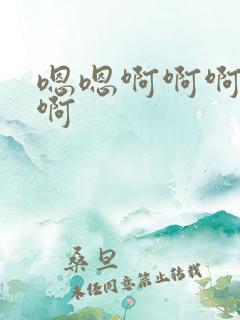 嗯嗯啊啊啊
啊
桑旦
未经同意禁止转载